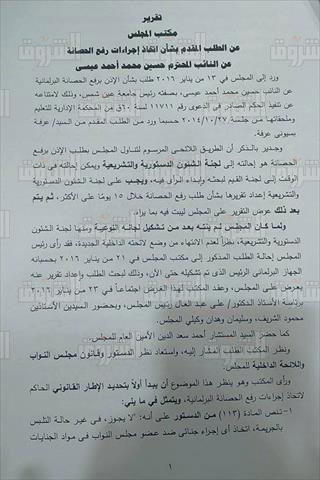 تقرير
مكتب المجلس
عن الطلب المقدم بشأن اتخاذ إجراءات رفع الحصانة
عن النائب المحترم حسين محمد أحمد عيسى
ورد إلى المجلس في ١٣ من يناير ٢٠١٦ طلب بشأن الإذن برفع الحصانة البرلمانية
عن النائب حسين محمد أحمد عيسى، بصفته رئيس جامعة عين شمس، وذلك لامتناعه
عن تنفيذ الحكم الصادر في الدعوى رقم ١١٧١١ لسنة ٦٠ق من المحكمة الإدارية للتعليم
وملحقاتها من جلسة ٢٠١٤/١٠/٢٧ حسبما ورد من الطلب المقدم من السيد/ عرفة
بسيونى عرفة.
وجدير بالذكر أن الطريق اللائحى المرسوم لتناول المجلس بطلب الإذن برفع
الحصانة هو إحالته إلى لجنة الشئون الدستورية والتشريعية ويمكن إحالته في ذات
الوقت إلى لجنة القيم لبحثه وإبداء الرأى فيه، ويجب على لجنة الشئون الدستورية
والتشريعية إعداد تقريرها بشأن طلب رفع الحصانة خلال ١٥ يومًا على الأكثر، ثم يتم
بعد ذلك عرض التقرير على المجلس ليبت فيه بما يراه.
ولما كان المجلس لم ينته بعد من تشكيل لجانه النوعية ومنها لجنة الشئون
الدستورية والتشريعية، نظرًا لعدم الانتهاء من وضع لائحته الداخلية الجديدة، فقد رأى رئيس
المجلس إحالة الطلب المذكور إلى مكتب المجلس في ٢١ من يناير ٢٠١٦ بحسبانه
الجهاز البرلمانى الرئيس الذى تم تشكيله حتى الآن، وذلك لبحث الطلب وإعداد تقرير عنه
يعرض على المجلس، وعقد المكتب لهذا الغرض اجتماعاً في ٢٣ من يناير ٢٠١٦
برئاسة الأستاذ الدكتور/ على عبد العال رئيس المجلس، وبحضور السيدين الأستاذين
محمود الشريف، وسليمان وهدان وكيلى المجلس.
كما حضر السيد المستشار أحمد سعد الدين الأمين العام للمجلس.
ونظر المكتب الطلب المشار إليه، واستعاد نظر الدستور وقانون مجلس النواب
واللائحة الداخلية للمجلس.
ورأى المكتب وهو ينظر هذا الموضوع أن يبدأ أولاً بتحديد الإطار القانونى الحاكم
لاتخاذ إجراءات رفع الحصانة البرلمانية، ويتمثل في ما يلي:
١- تنص المادة (١١٣) من الدستور على أنه: "لا يجوز، في غير حالة التلبس
بالجريمة، اتخاذ أى إجراء جنائى ضد عضو مجلس النواب فى مواد الجنايات
١
الشروق